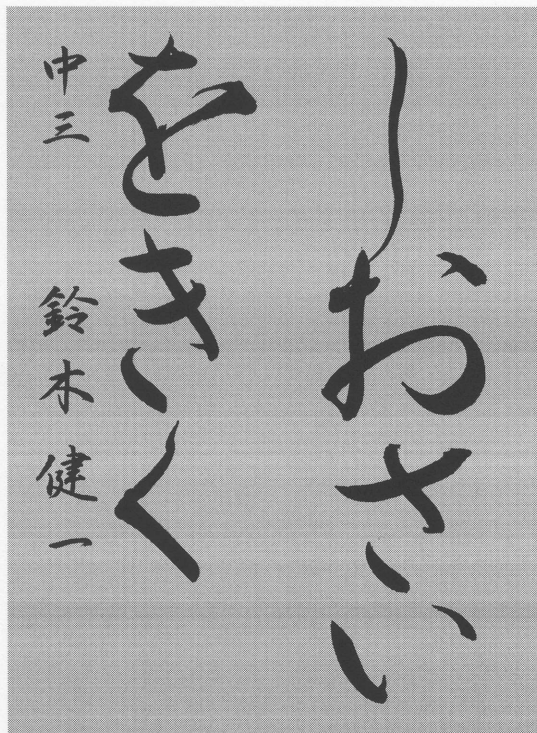 しおさい
をきく
中三 鈴木健一